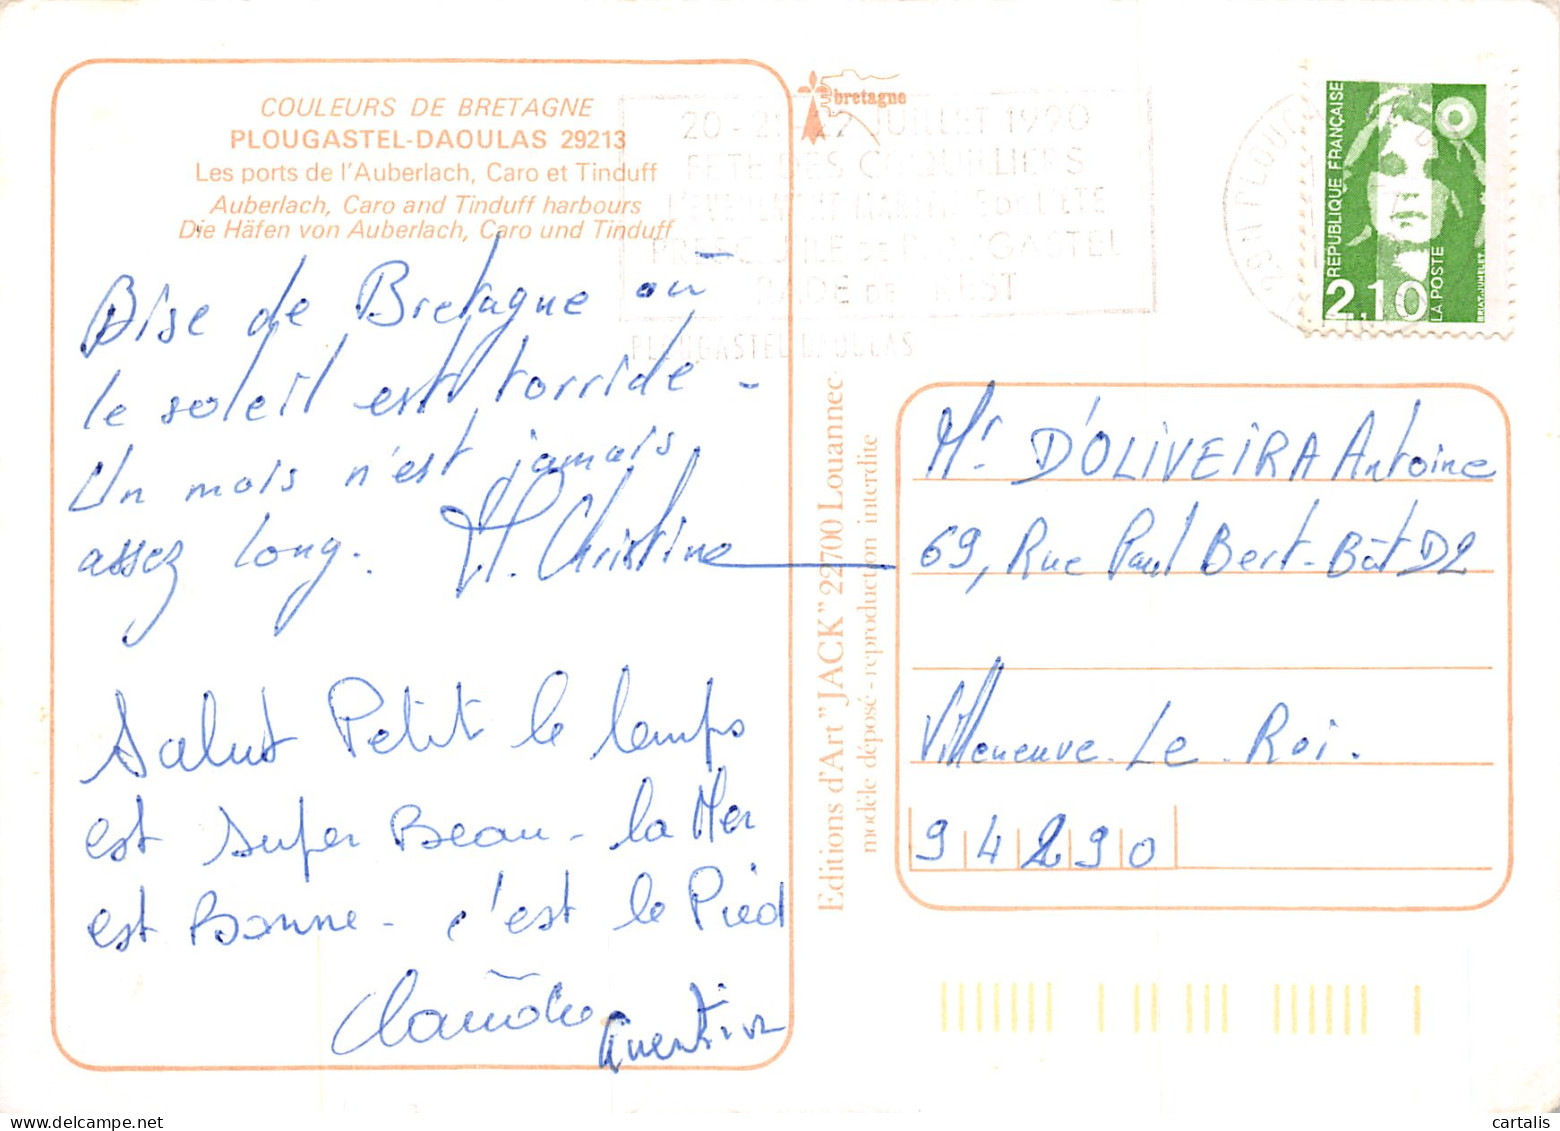 COULEURS DE BRETAGNE
PLOUGASTEL-DAOULAS 29213
Les ports de l'Auberlach, Caro et Tinduff
Auberlach, Caro and Tinduff harbours
Die Häfen von Auberlach, Caro und Tinduff
Bise de Bretagne où
le soleil est torride -
Un mois n'est jamais
assez long. M. Christine
Salut Petit le temps
est super Beau - la Mer
est Bonne - c'est le Pied
Quentin
bretagne
20-21-22 JUILLET 1990
FETE DES COQUILLIERS
PRESQU'ILE DE PLOUGASTEL
RADE DE BREST
PLOUGASTEL DAOULAS
RÉPUBLIQUE FRANÇAISE
2,10
LA POSTE
BRIAT-JUMELET
Editions d'Art "JACK" 22700 Louannec
modèle déposé - reproduction interdite
Mr D'OLIVEIRA Antoine
69, Rue Paul Bert - Bât D2
Villeneuve - Le - Roi.
94290
cartalis